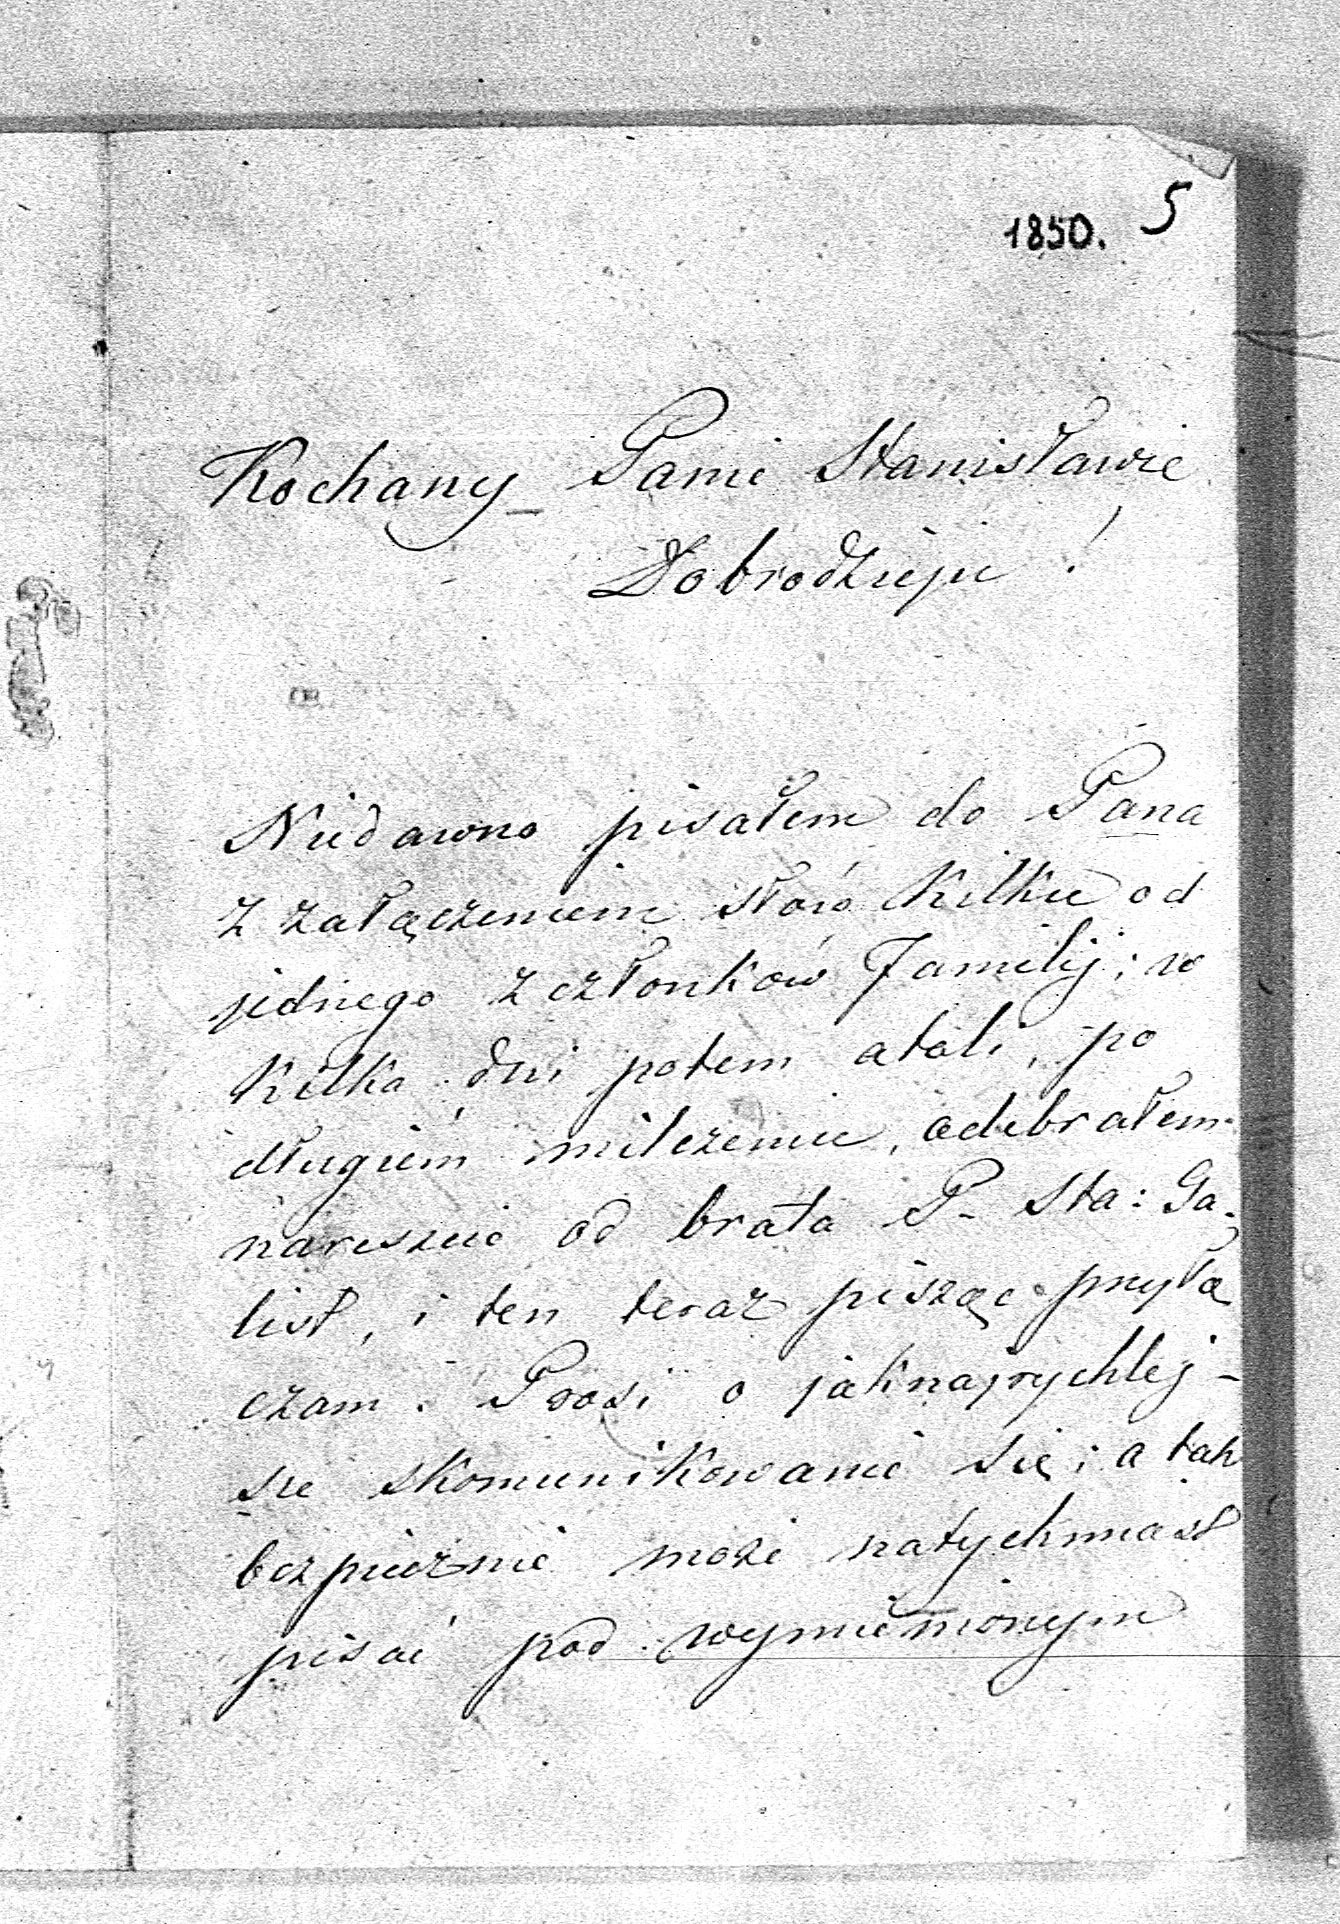 1850. 5
Kochany Panie Stanisławie
Dobrodzieju!
Niedawno pisałem do Pana
z załączeniem słów kilku od
jednego z członków Familij; w
kilka dni potem atoli, po
długiém milczeniu, odebrałem
nareszcie od brata P. Sta: Ga.
list, i ten teraz pisząc przyłą
czam. Prosi o jaknajrychlej-
sze skomunikowanie się; a tak
bezpiecznie może natychmiast
pisać pod wymienionym